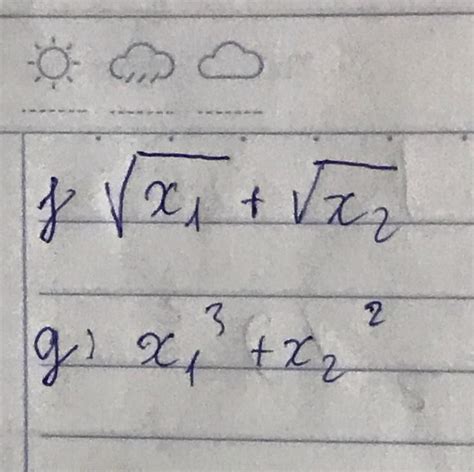 f √x₁ + √x₂
g) x₁³ + x₂²